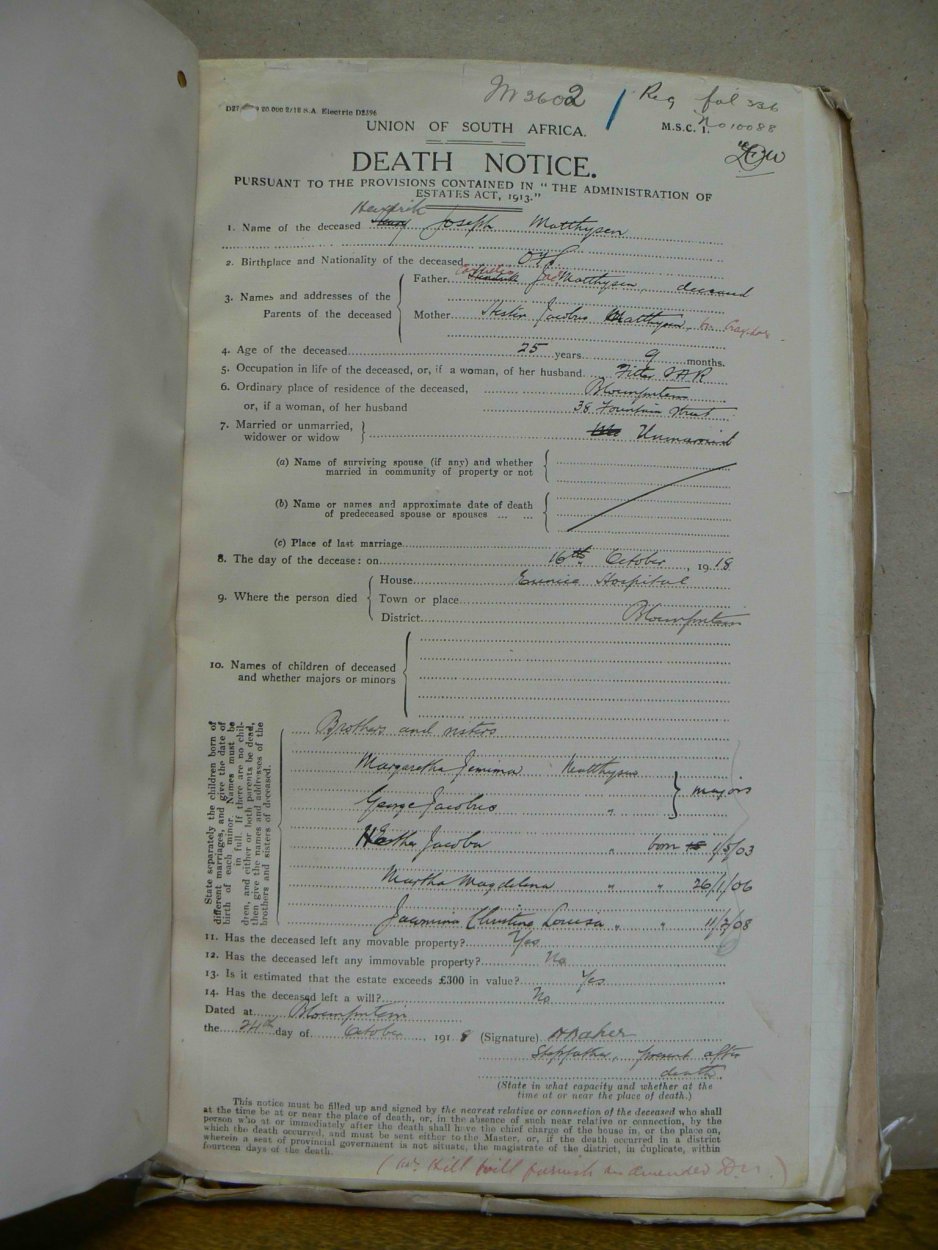 M 3602 / Reg fol 336
D27 20.000 2/18 S.A. Electric D2396
No 10088
UNION OF SOUTH AFRICA. M.S.C. 1.
DEATH NOTICE.
PURSUANT TO THE PROVISIONS CONTAINED IN "THE ADMINISTRATION OF
ESTATES ACT, 1913."
Hendrik
1. Name of the deceased Joseph Matthysen
2. Birthplace and Nationality of the deceased OFS
3. Names and addresses of the Parents of the deceased
Father Matthysen, deceased
Mother Jacoba Matthysen,
4. Age of the deceased 25 years 9 months.
5. Occupition in life of the deceased, or, if a woman, of her husband Fitter SAR
6. Ordinary place of residence of the deceased, Bloemfontein
or, if a woman, of her husband 38 Fountain Street
7. Married or unmarried, widower or widow Unmarried
(a) Name of surviving spouse (if any) and whether
married in community of property or not
(b) Name or names and approximate date of death
of predeceased spouse or spouses ... ...
(c) Place of last marriage
8. The day of the decease: on 16th October, 1918
9. Where the person died
House Eunice Hospital
Town or place
District Bloemfontein
10. Names of children of deceased
and whether majors or minors
State separately the children born of
different marriages, and give the date of
birth of each minor. Names must be
in full. If there are no chil-
dren, and either or both parents be dead,
then give the names and addresses of the
brothers and sisters of deceased.
Brothers and sisters
Margaretha Jemima Matthysen
George Jacobus " } majors
Hester Jacoba " born 1/5/03
Martha Magdelena " " 26/1/06
Jacomina Christina Louisa " " 11/2/08
11. Has the deceased left any movable property? Yes
12. Has the deceased left any immovable property? No
13. Is it estimated that the estate exceeds £300 in value? Yes
14. Has the deceased left a will? No
Dated at Bloemfontein
the 24th day of October, 1918 (Signature)
Stepfather, present after
death
(State in what capacity and whether at the
time at or near the place of death.)
This notice must be filled up and signed by the nearest relative or connection of the deceased who shall
at the time be at or near the place of death, or, in the absence of such near relative or connection, by the
person who at or immediately after the death shall have the chief charge of the house in, or the place on,
which the death occurred, and must be sent either to the Master, or, if the death occurred in a district
wherein a seat of provincial government is not situate, the magistrate of the district, in duplicate, within
fourteen days of the death.
(Mr. Hill will furnish an amended D.N.)